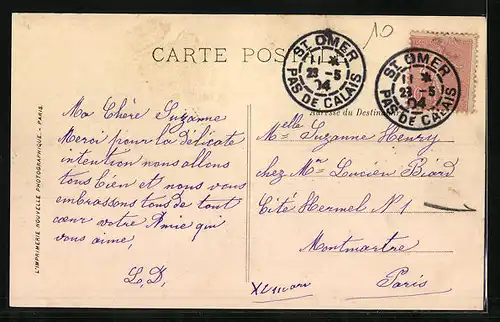 10
CARTE POSTALE
ST OMER
11
23 -5
04
PAS DE CALAIS
ST OMER
11
23 -5
04
PAS DE CALAIS
Adresse du Destinataire
Ma Chère Suzanne
Merci pour la délicate
intention nous allons
tous bien et nous vous
embrassons tous de tout
cœur votre Amie qui
vous aime,
L. D,
Melle Suzanne Henry
chez Mr Lucien Biard
Cité Hermel N 1
Montmartre
Paris
L'IMPRIMERIE NOUVELLE PHOTOGRAPHIQUE - PARIS